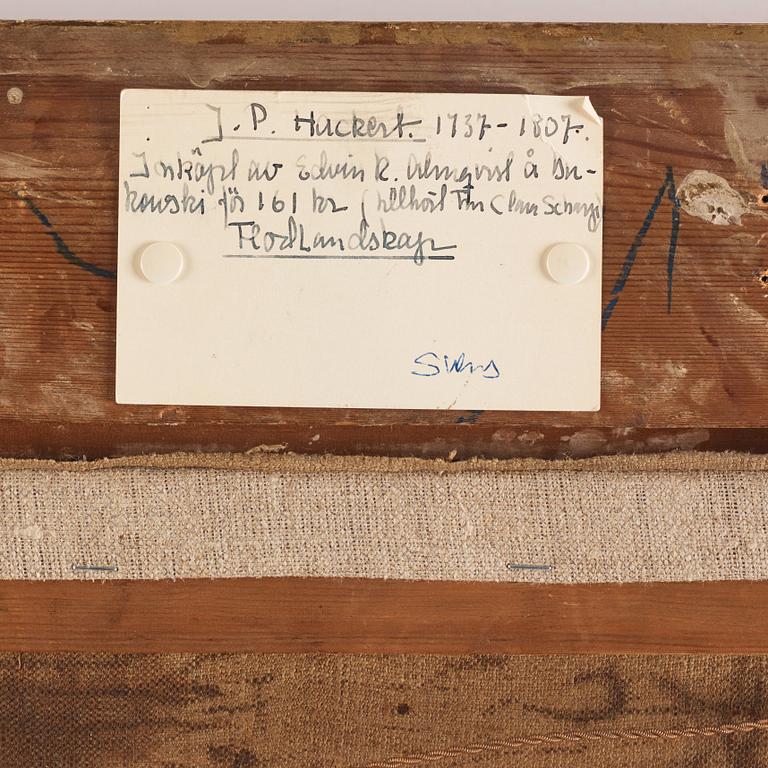 J. P. Hackert. 1737-1807.
Inköpt av Edvin R. Almqvist å Bu-
kowski för 161 kr (tillhört Clan
Flodlandskap